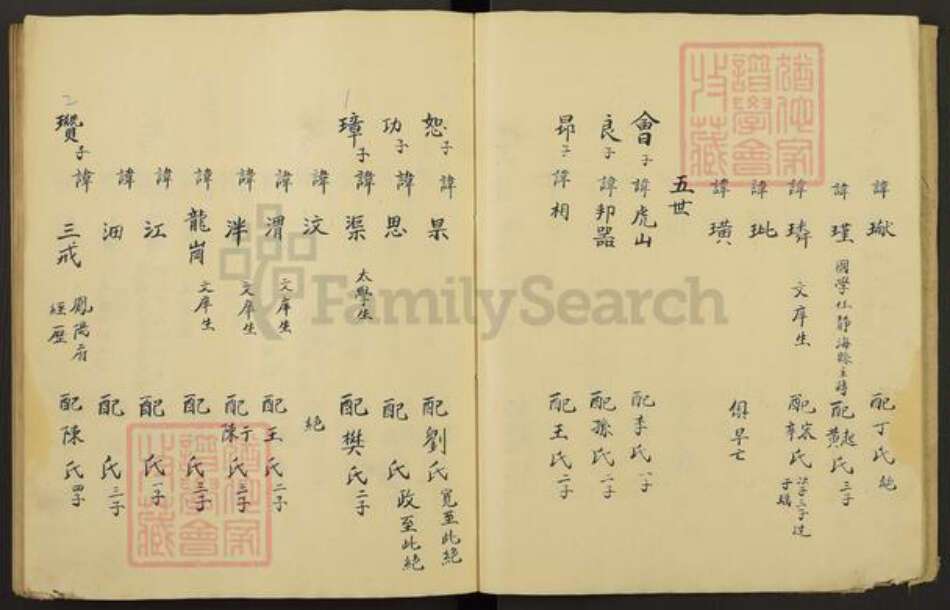 諱瑊 配丁氏 絶
諱瑾 國學仕靜海縣主簿 配趙黃氏 三子
諱璘 文庠生 配宋辛氏 三子
諱玭
諱璜 俱早亡
五世
會子 諱虎山 配李氏 一子
良子 諱邦器 配孫氏 一子
昂子 諱相 配王氏 二子
恕子 諱杲 配劉氏 寬至此絕
功子 諱思 配 氏 政至此絕
璋子 諱渠 太學生 配樊氏 二子
諱汶 絕
諱渭 文庠生 配王氏 二子
諱泮 文庠生 配于陳氏 三子
諱龍崗 文庠生 配 氏 三子
諱江 配 氏 一子
諱泗 配 氏 三子
瓚子 諱三戒 鳳陽府經歷 配陳氏 四子
1
2
FamilySearch
譜學會
收藏